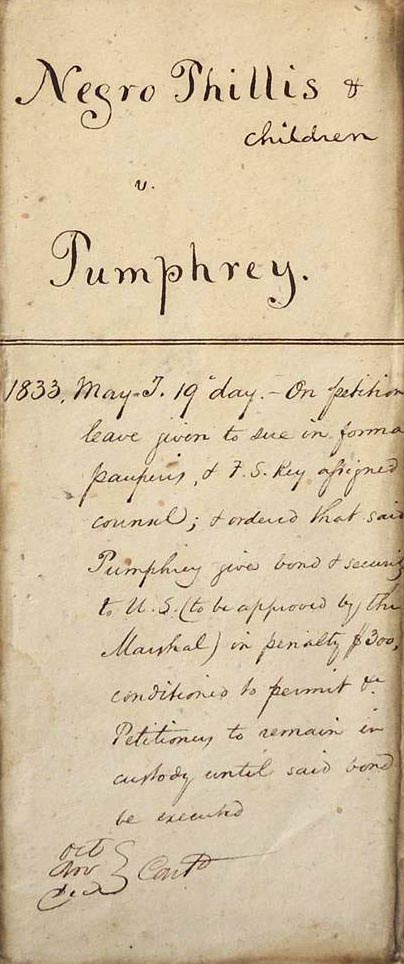 Negro Phillis &
children
v.
Pumphrey.
1833. May-T. 19 day. - On petition
leave given to sue in forma
pauperis, & F. S. Key assigned
counsel; & ordered that said
Pumphrey give bond & security
to U.S. (to be approved by the
Marshal) in penalty $300,
conditioned to permit &c.
Petitioners to remain in
custody until said bond
be executed
Oct
Nov
Dec } Contd